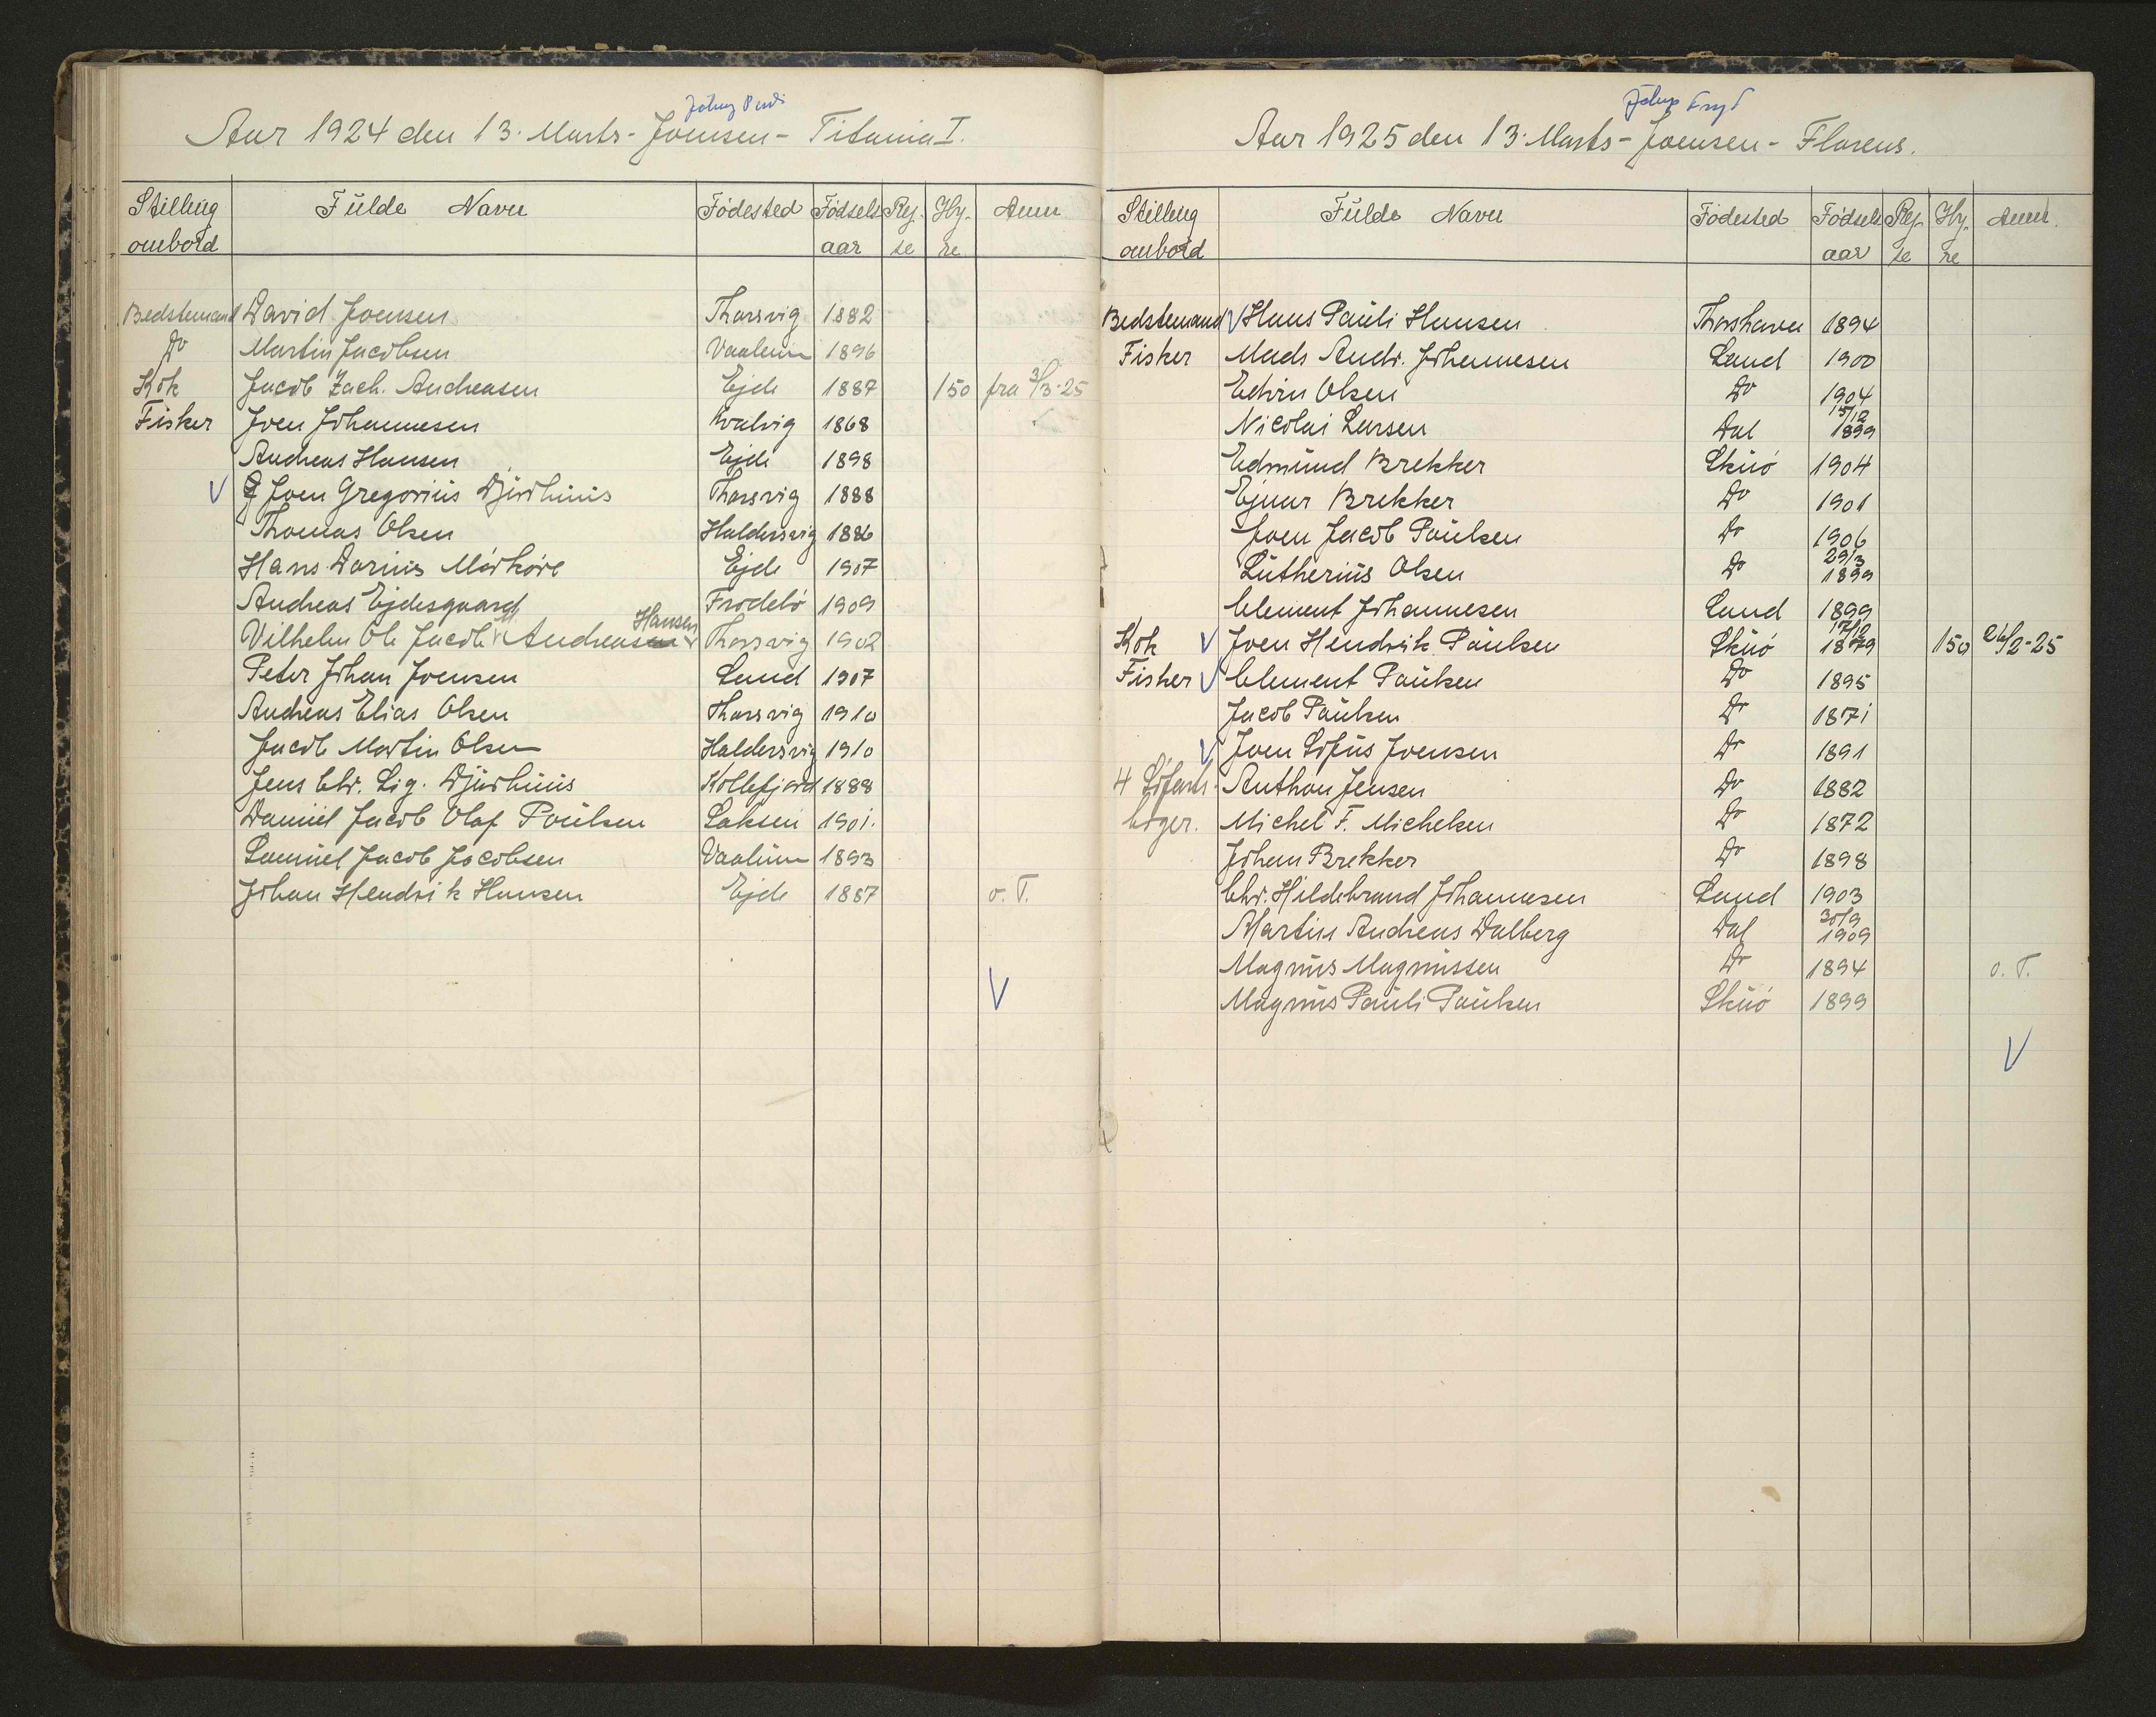 Aar 1924 den 13. Marts - Joensen - Titania I.
Stilling ombord Fulde Navn Födested Födsels aar Rej- se Hy- re Anm
Bedstemand David Joensen Thorsvig 1882
Do Martin Jacobsen Vaalum 1896
Kok Jacob Zach. Andreasen Ejde 1887 150 fra 3/3-25
Fisker Joen Johannesen Kvalvig 1868
Andreas Hansen Ejde 1898
V Joen Gregorius Djurhuus Thorsvig 1888
Thomas Olsen Haldersvig 1886
Hans Darius Mörköre Ejde 1907
Andreas Ejdesgaard Frodebö 1909
Vilhelm Ole Jacob M. Andreasen Hansen Thorsvig 1902
Peter Johan Joensen Sand 1907
Andreas Elias Olsen Thorsvig 1910
Jacob Martin Olsen Haldersvig 1910
Jens Chr. Sig. Djurhuus Kollefjord 1888
Daniel Jacob Olaf Poulsen Saksen 1901.
Samuel Jacob Jacobsen Vaalum 1893
Johan Hendrik Hansen Ejde 1887 o. T.
V
Aar 1925 den 13. Marts - Joensen - Florens.
Stilling ombord Fulde Navn Födested Födsels aar Rej- se Hy- re Anm.
Bedstemand V Hans Pauli Hansen Thorshavn 1894
Fisker Mads Andr. Johannesen Sand 1900
Edvin Olsen Do 1904
Nicolai Larsen Dal 15/12 1899
Edmund Brekker Skuö 1904
Ejnar Brekker Do 1901
Joen Jacob Poulsen Do 1906
Lutherius Olsen Do 29/3 1899
Clement Johannesen Sand 1899
Kok V Joen Hendrik Poulsen Skuö 17/12 1879 150 26/2-25
Fisker V Clement Poulsen Do 1895
Jacob Poulsen Do 1871
V Joen Sofus Joensen Do 1891
4 Söfarts- Anthon Jensen Do 1882
böger. Michel F. Michelsen Do 1872
Johan Brekker Do 1898
Chr. Hildebrand Johannesen Sand 1903
Martin Andreas Dalberg Dal 30/9 1909
Magnus Magnussen Do 1894 o. T.
Magnus Pauli Poulsen Skuö 1899
V